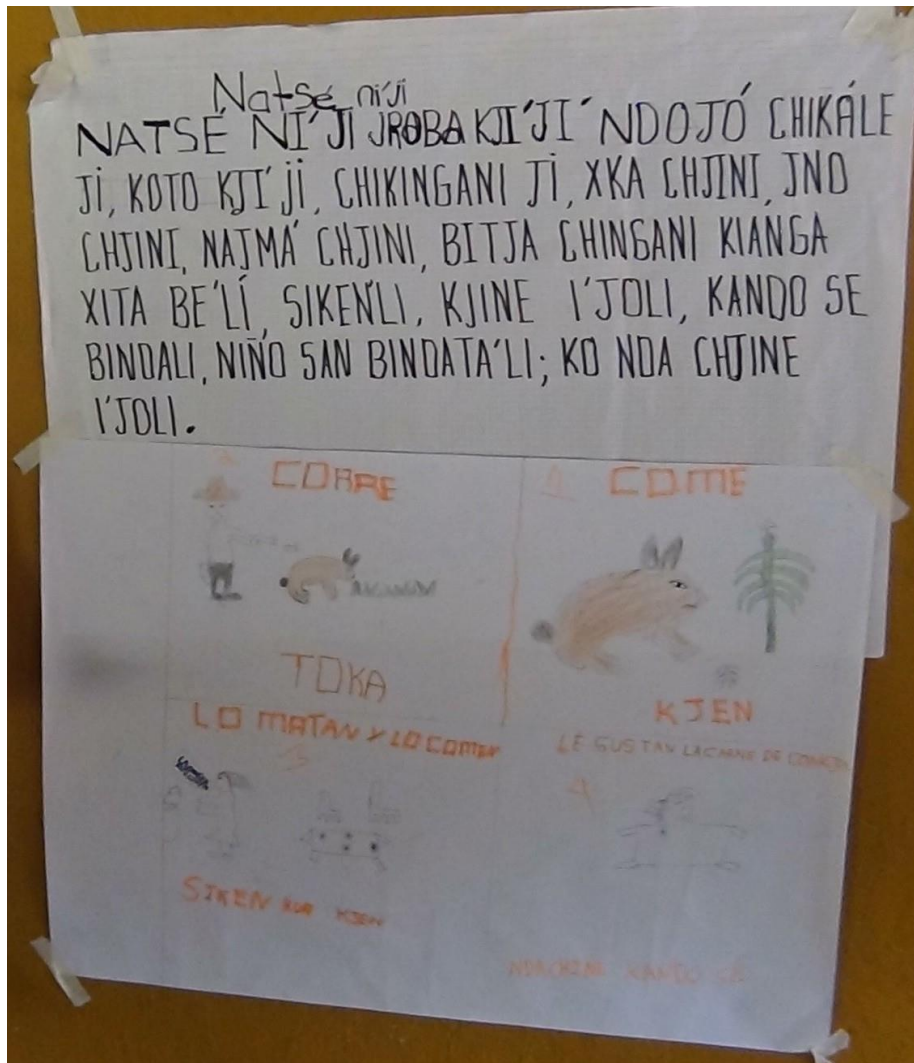 Natsé ni'ji
NATSÉ NI'JI JROBA KJI'JI' NDOJÓ CHIKÁLE
JI, KOTO KJI'JI, CHIKINGANI JI, XKA CHJINI, JNO
CHJINI, NAJMÁ CHJINI, BITJA CHINGANI KIANGA
XITA BE'LÍ, SIKEN'LI, KJINE I'JOLI, KANDO SE
BINDALI, NIÑO SAN BINDATA'LI; KO NDA CHJINE
I'JOLI.
2 CORRE
1 COME
TOKA
KJEN
LO MATAN Y LO COMEN
3
LE GUSTAN LA CARNE DE CONEJO
4
SIKEN KJEN
KANDO SE